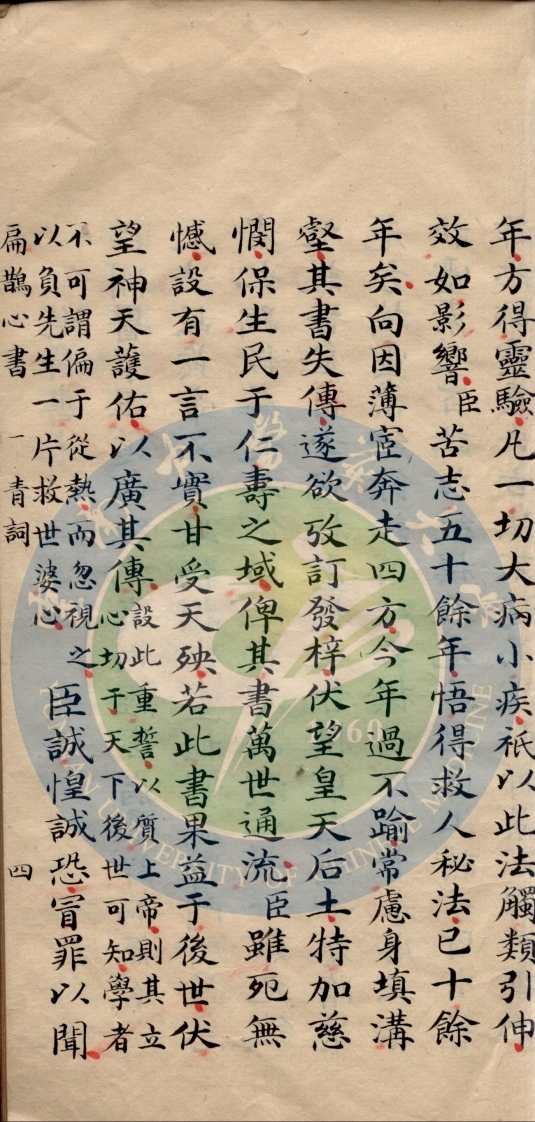 年方得靈驗凡一切大病小疾祇以此法觸類引伸
效如影響臣苦志五十餘年悟得救人秘法已十餘
年矣向因薄宦奔走四方今年過不踰常慮身填溝
壑其書失傳遂欲攷訂發梓伏望皇天后土特加慈
憫保生民于仁壽之域俾其書萬世通流臣雖死無
憾設有一言不實甘受天殃若此書果益于後世伏
望神天護佑以廣其傳
設此重誓以質上帝則其立
心切于天下後世可知學者
不可謂偏于從熱而忽視之
以負先生一片救世婆心
臣誠惶誠恐冒罪以聞
扁鵲心書 一 青詞 四
1960
UNIVERSITY OF CHINESE MEDICINE